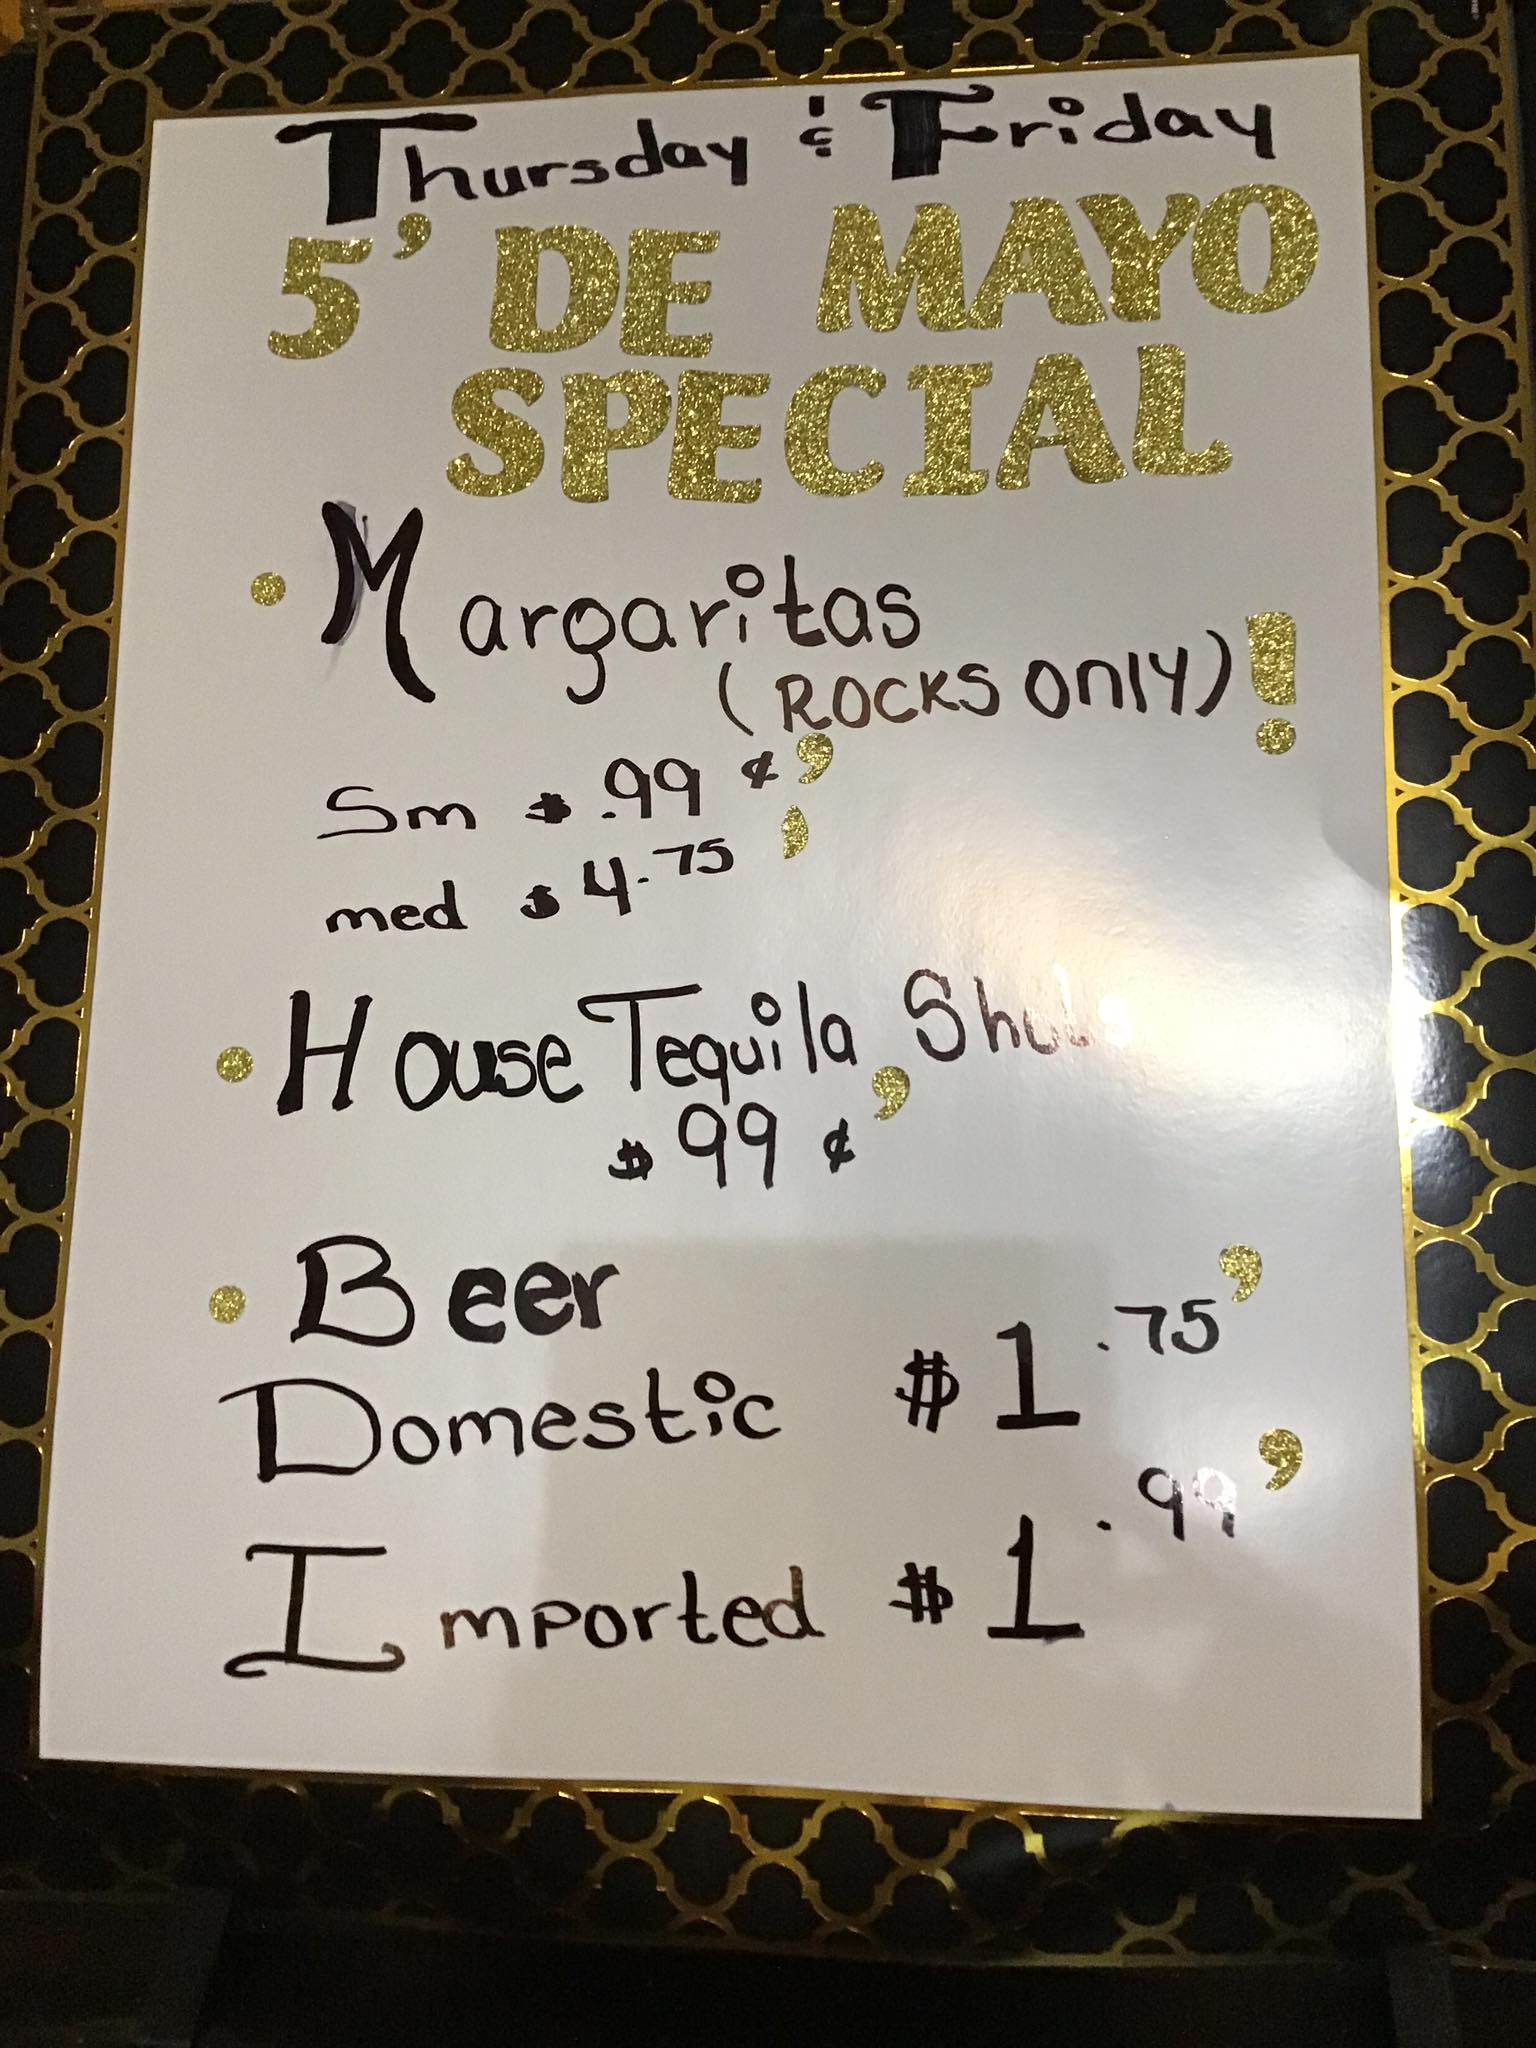 Thursday & Friday
5' DE MAYO
SPECIAL
• Margaritas
(ROCKS Only)!
Sm $ .99 ¢'
med $ 4.75 '
• House Tequila
$ 99 ¢'
• Beer
Domestic $1.75'
Imported $1.99'